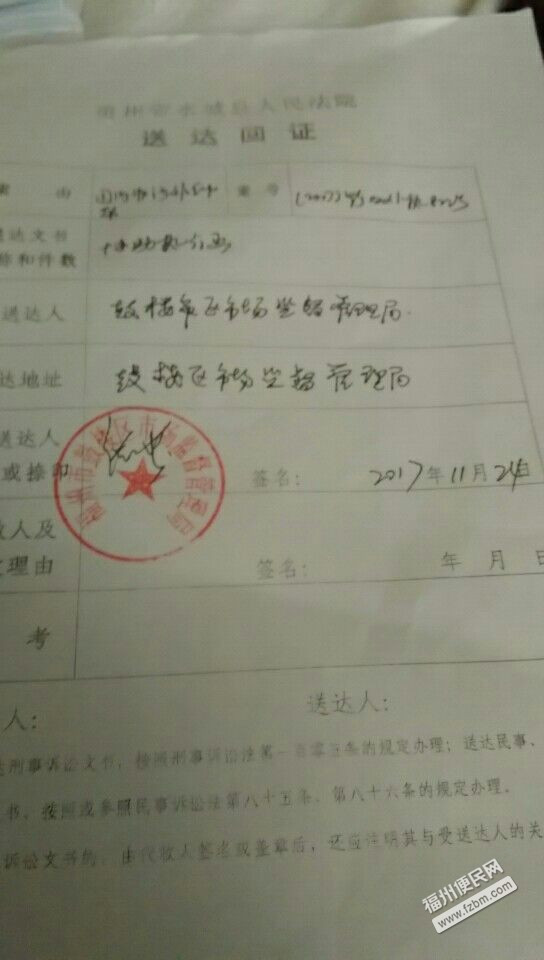 贵州省水城县人民法院
送达回证
案由
案号
送达文书
称和件数
协助执行函
送达人
鼓楼区市场监督管理局
达地址
鼓楼区市场监督管理局
送达人
或捺印
福州市鼓楼区市场监督管理局
签名:
2017年11月24日
收人及
理由
签名:
年 月 日
考
人:
送达人:
达刑事诉讼文书,按照刑事诉讼法第一百零五条的规定办理;送达民事、
书,按照或参照民事诉讼法第八十五条、第八十六条的规定办理。
诉讼文书的,由代收人签名或盖章后,还应注明其与受送达人的关
福州便民网
www.fzbm.com